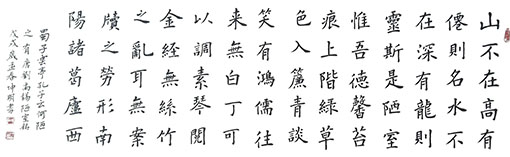 山不在高有
僊則名水不
在深有龍則
靈斯是陋室
惟吾德馨苔
痕上階綠草
色入簾青談
笑有鴻儒往
来無白丁可
以調素琴閱
金經無絲竹
之亂耳無案
牘之勞形南
陽諸葛廬西
蜀子雲亭孔子云何陋
之有唐劉禹錫陋室銘
戊戌歲孟春仲明書